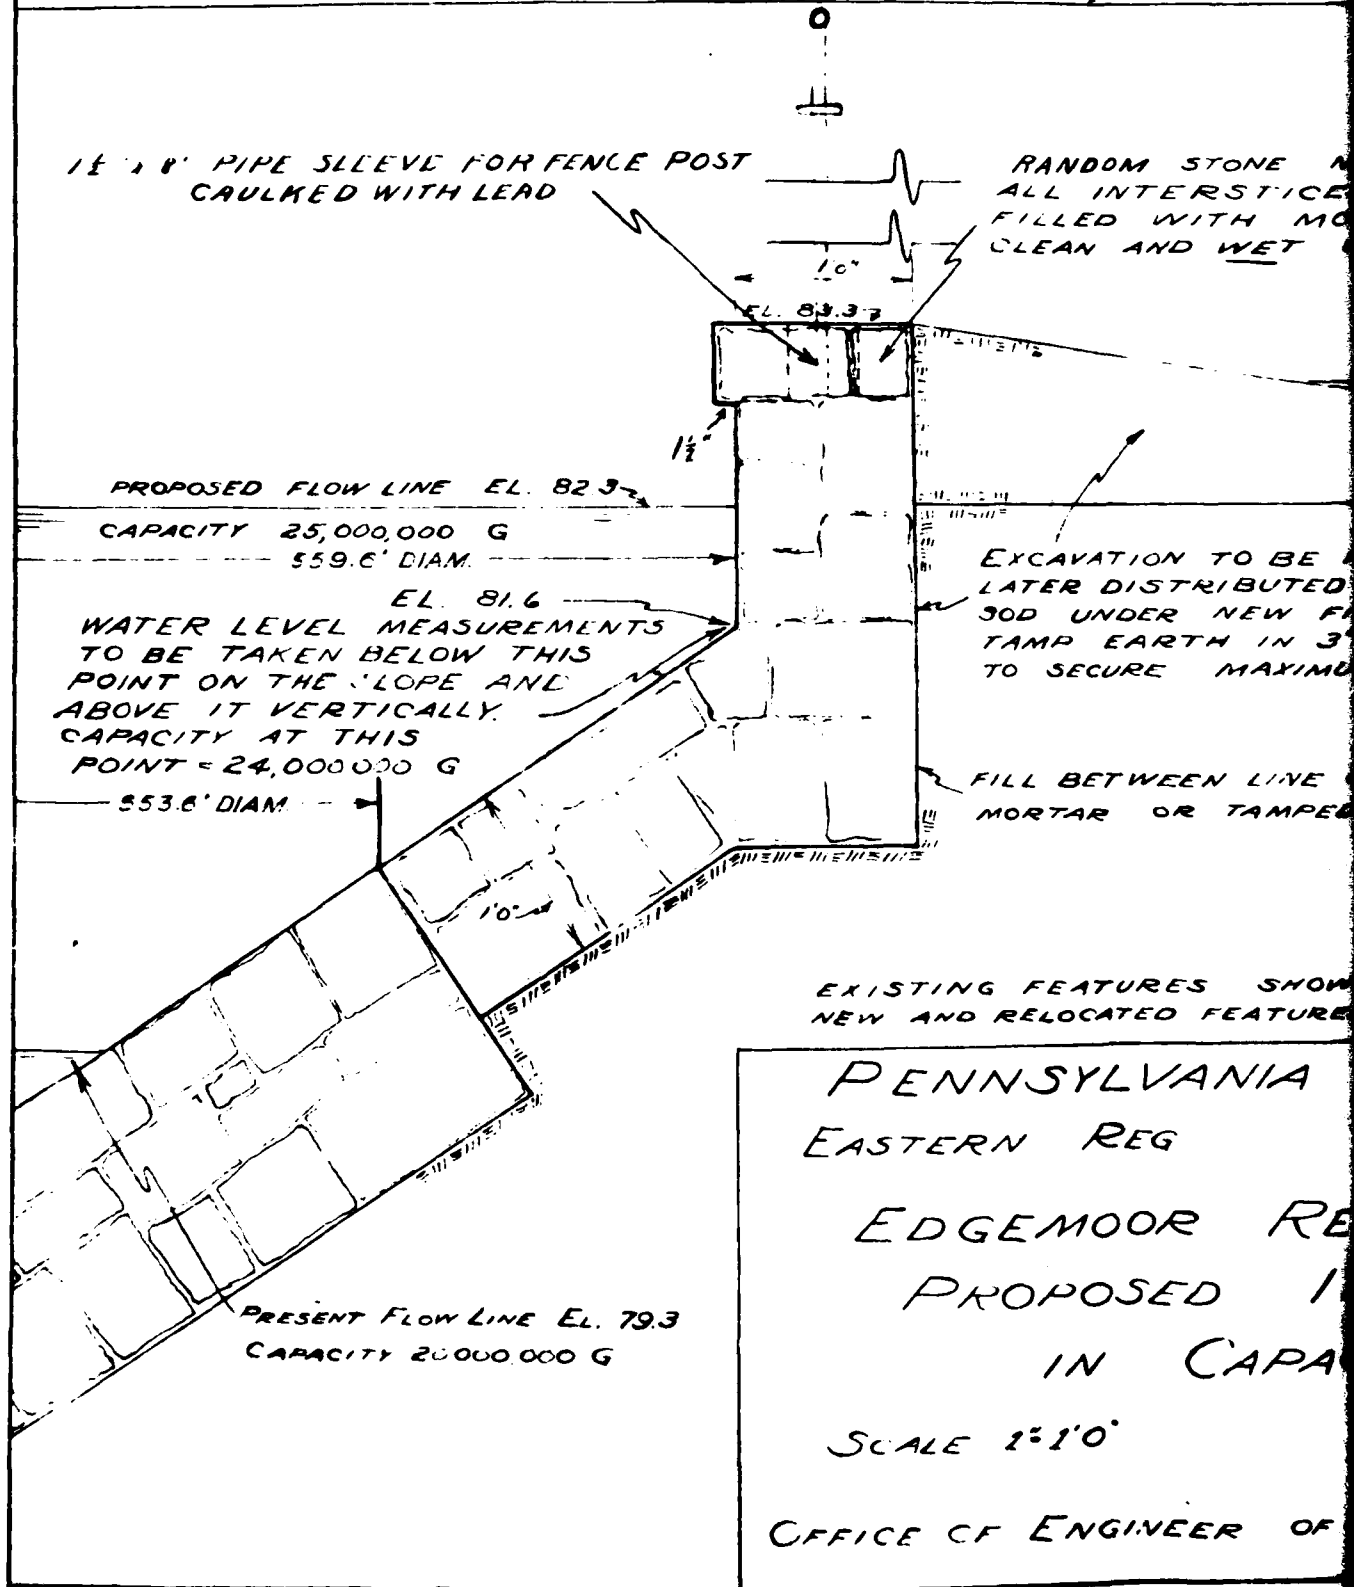 PIPE SLEEVE FOR FENCE POST
CAULKED WITH LEAD
RANDOM STONE
ALL INTERSTICE
FILLED WITH MO
CLEAN AND WET
1'0"
EL. 83.3
1½"
PROPOSED FLOW LINE EL. 82.3
CAPACITY 25,000,000 G
559.6' DIAM.
EL. 81.6
WATER LEVEL MEASUREMENTS
TO BE TAKEN BELOW THIS
POINT ON THE SLOPE AND
ABOVE IT VERTICALLY.
CAPACITY AT THIS
POINT = 24,000,000 G
553.6' DIAM
EXCAVATION TO BE
LATER DISTRIBUTED
SOD UNDER NEW F
TAMP EARTH IN 3"
TO SECURE MAXIMU
FILL BETWEEN LINE
MORTAR OR TAMPED
1'0"
EXISTING FEATURES SHOW
NEW AND RELOCATED FEATURE
PRESENT FLOW LINE EL. 79.3
CAPACITY 20,000,000 G
PENNSYLVANIA
EASTERN REG
EDGEMOOR RE
PROPOSED I
IN CAPA
SCALE 1"=1'0"
OFFICE OF ENGINEER OF